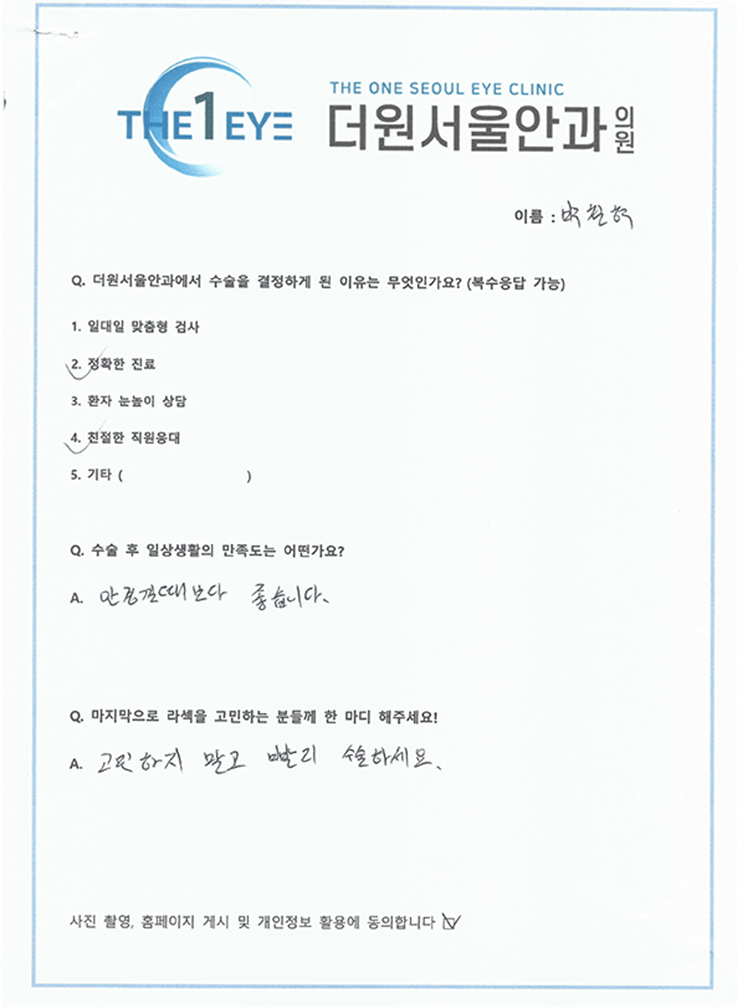 THE 1 EYE
THE ONE SEOUL EYE CLINIC
더원서울안과의원
이름 :
Q. 더원서울안과에서 수술을 결정하게 된 이유는 무엇인가요? (복수응답 가능)
1. 일대일 맞춤형 검사
2. 정확한 진료
3. 환자 눈높이 상담
4. 친절한 직원응대
5. 기타 ( )
Q. 수술 후 일상생활의 만족도는 어떤가요?
A. 안경낄때보다 좋습니다.
Q. 마지막으로 라섹을 고민하는 분들께 한 마디 해주세요!
A. 고민하지 말고 빨리 수술하세요.
사진 촬영, 홈페이지 게시 및 개인정보 활용에 동의합니다